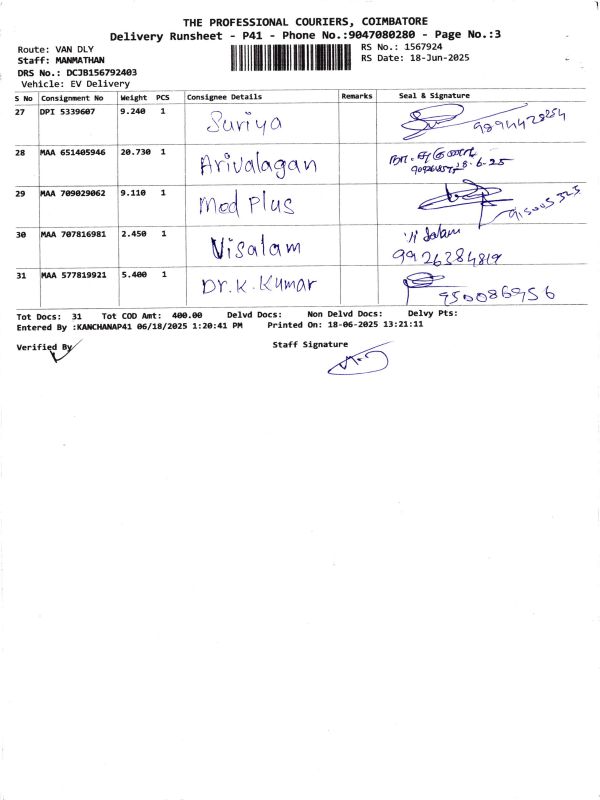 THE PROFESSIONAL COURIERS, COIMBATORE
Delivery Runsheet - P41 - Phone No.:9047080280 - Page No.:3
Route: VAN DLY
RS No.: 1567924
Staff: MANMATHAN
RS Date: 18-Jun-2025
DRS No.: DCJB156792403
Vehicle: EV Delivery
S No Consignment No Weight PCS Consignee Details Remarks Seal & Signature
27 DPI 5339607 9.240 1 Suriya 9894428254
28 MAA 651405946 20.730 1 Arivalagan
29 MAA 709029062 9.110 1 Med Plus
30 MAA 707816981 2.450 1 Visalam 9926384819
31 MAA 577819921 5.400 1 Dr.K.Kumar 950086956
Tot Docs: 31 Tot COD Amt: 400.00 Delvd Docs: Non Delvd Docs: Delvy Pts:
Entered By :KANCHANAP41 06/18/2025 1:20:41 PM Printed On: 18-06-2025 13:21:11
Verified By
Staff Signature